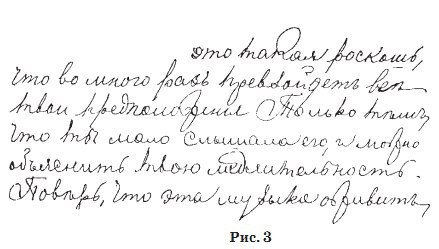 это такая роскошь,
что во много разъ превзойдетъ всѣ
твои предположенія. Только тѣмъ,
что ты мало слышала его, и можно
объяснить твою медлительность.
Повѣрь, что эта музыка оживитъ,
Рис. 3